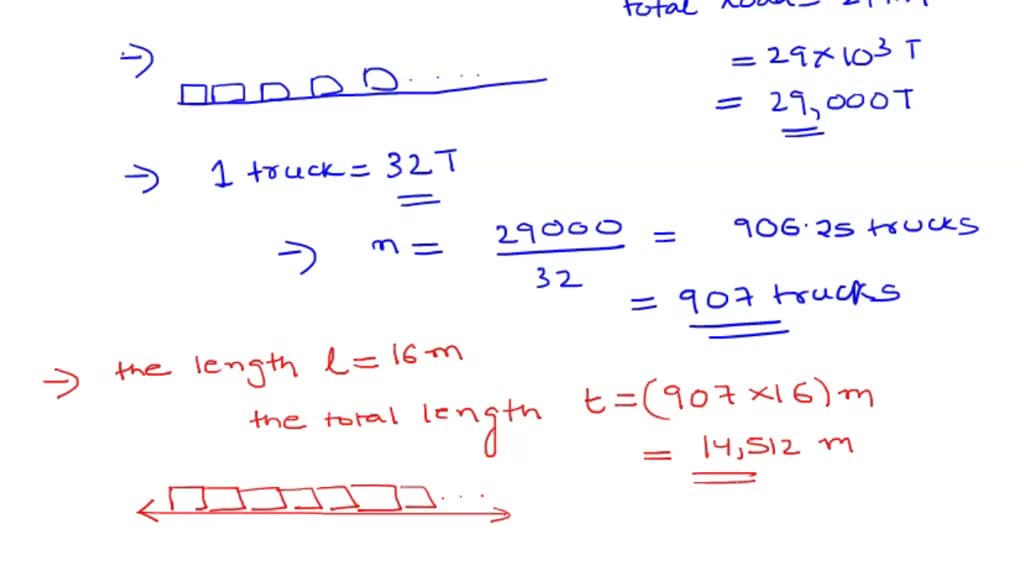 total
= 29×10³ T
= 29,000T
→ 1 truck = 32T
→ n = 29000/32 = 906.25 trucks
= 907 trucks
→ the length l = 16m
the total length t = (907×16)m
= 14,512 m